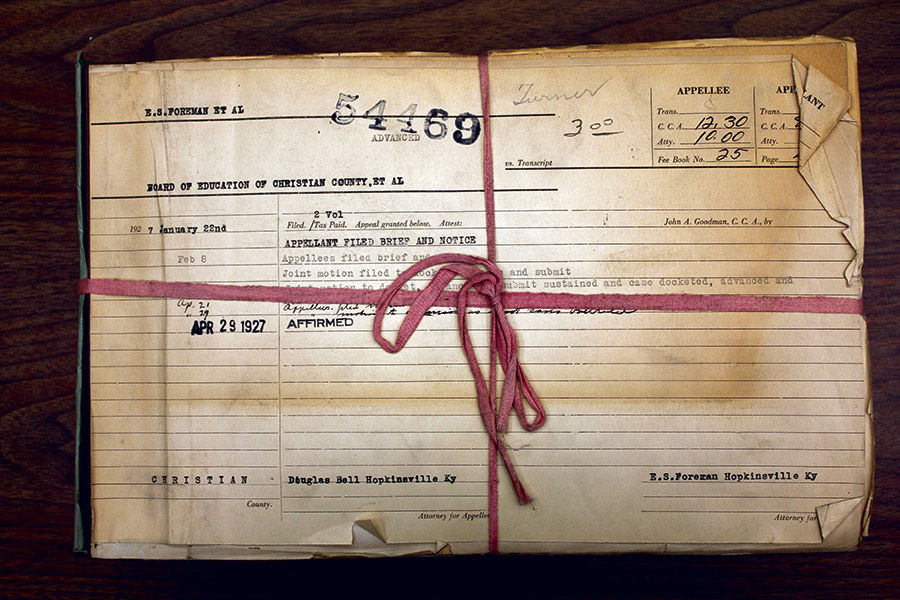 E.S.FOREMAN ET AL
54469
ADVANCED
Turner
3 00
vs. Transcript
APPELLEE
Trans.
C. C. A. 12.30
Atty. 10.00
Fee Book No. 25
APP LANT
Trans.
C. C. A.
Atty.
Page
BOARD OF EDUCATION OF CHRISTIAN COUNTY,ET AL
2 Vol
192 7 January 22nd
Filed. /Tax Paid. Appeal granted below. Attest:
John A. Goodman, C. C. A., by
APPELLANT FILED BRIEF AND NOTICE
Feb 8 Appellees filed brief and
Joint motion filed to and submit
Joint motion to submit sustained and case docketed, advanced and
Ap. 21 Appellees filed
" 29
APR 29 1927 AFFIRMED
CHRISTIAN
County.
Douglas Bell Hopkinsville Ky
Attorney for Appellee
E.S.Foreman Hopkinsville Ky
Attorney for